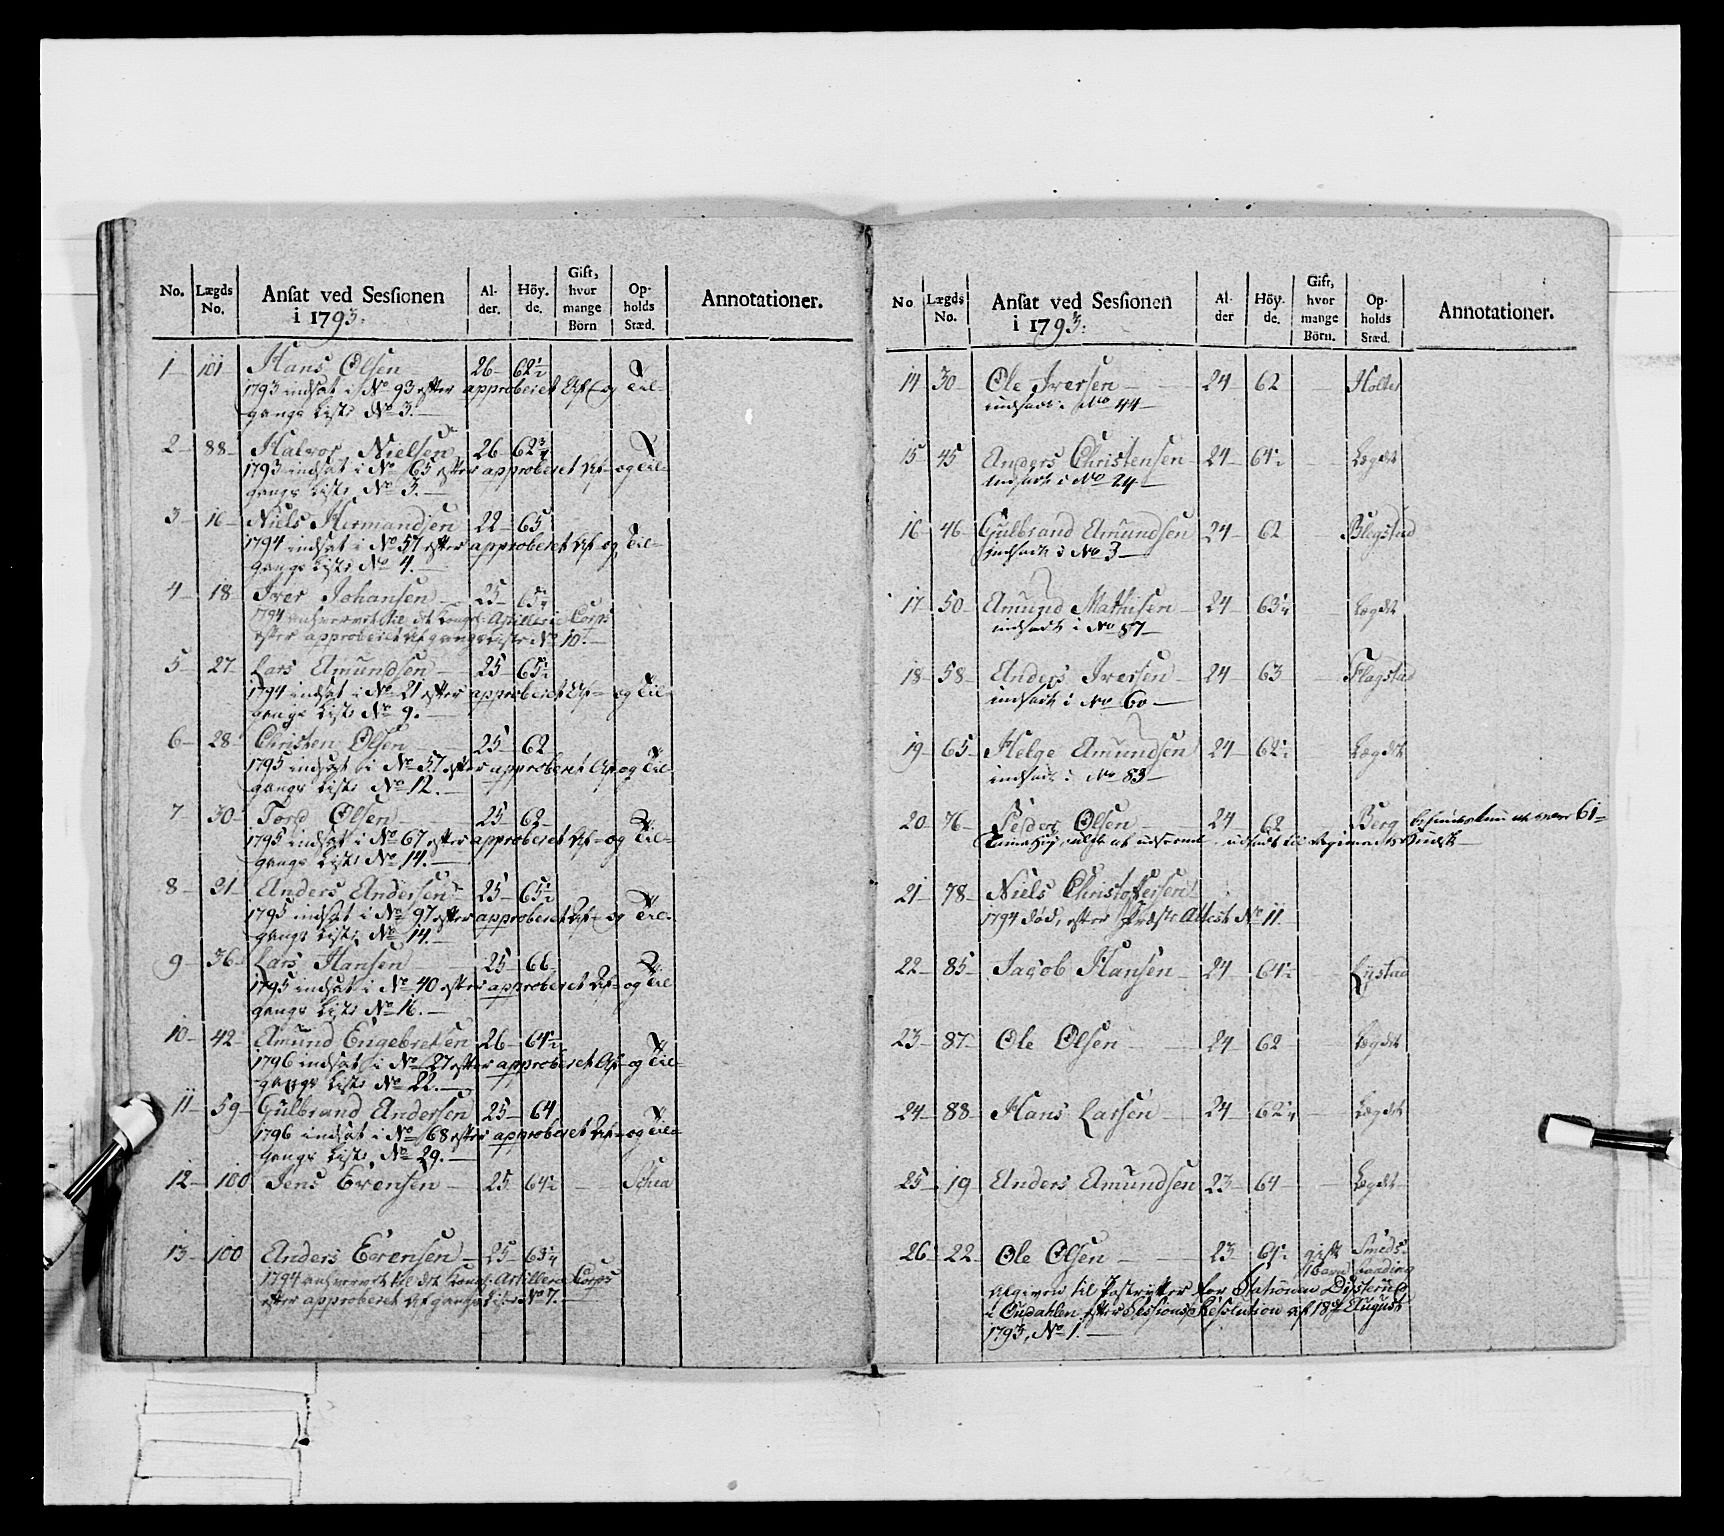 No. Lægds No. Ansat ved Sessionen i 1793. Alder. Höyde. Gift, hvor mange Börn Opholds Stæd. Annotationer.
1 101 Hans Olsen 26 62½
1793 indsat i No 93 efter approberet Af- og Til-
gangs Liste No 3.
2 88 Halvor Nielsen 26 62¾
1793 indsat i No 65 efter approberet Af- og Til-
gangs Liste No 3.
3 16 Niels Hermandsen 22 65
1794 indsat i No 57 efter approberet Af- og Til-
gangs Liste No 4.
4 18 Iver Johansen 25
1794 til det Kongl: Artillerie Corps
efter approberet Afgangs Liste No 10.
5 27 Lars Amundsen 25
1794 indsat i No 21 efter approberet Af- og Til-
gangs Liste No 9.
6 28 Christen Olsen 25 62
1795 indsat i No 57 efter approberet Af- og Til-
gangs Liste No 12.
7 30 Tord Olsen 25 62
1795 indsat i No 67 efter approberet Af- og Til-
gangs Liste No 14.
8 31 Anders Andersen 25
1795 indsat i No 97 efter approberet Af- og Til-
gangs Liste No 14.
9 36 Lars Hansen 25 66
1795 indsat i No 40 efter approberet Af- og Til-
gangs Liste No 16.
10 42 Amund Engebretsen 26 64½
1796 indsat i No 27 efter approberet Af- og Til-
gangs Liste No 22.
11 59 Gulbrand Andersen 25 64
1796 indsat i No 68 efter approberet Af- og Til-
gangs Liste No 29.
12 100 Jens Evensen 25 64½
13 100 Anders Evensen 25
1794 til det Kongl: Artillerie Corps
efter approberet Afgangs Liste No 7.
No Lægds No. Ansat ved Sessionen i 1793. Alder Höyde. Gift, hvor mange Börn. Opholds Stæd. Annotationer.
14 30 Ole Iversen 24 62 Holter
indsadt i No 44
15 45 Anders Christensen 24 Lægdet
indsadt i No 24
16 46 Gulbrand Amundsen 24 62
indsadt i No 3
17 50 Amund Mathisen 24 Lægdet
indsadt i No 87
18 58 Anders Iversen 24 63 Flagstad
indsadt i No 60
19 65 Helge Amundsen 24 Lægdet
indsadt i No 83
20 76 Peder Olsen 24 62 Berg
21 78 Niels Christofersen
1794 død, efter Præste Attest No 11.
22 85 Jacob Hansen 24 Lystad
23 87 Ole Olsen 24 62 Lægdet
24 88 Hans Larsen 24 Lægdet
25 19 Anders Amundsen 23 64 Lægdet
26 22 Ole Olsen 23 gift 1 barn
Afgiven til Postrytter for Stationen
efter Sessions Resolution af 18de August
1793, No 1.